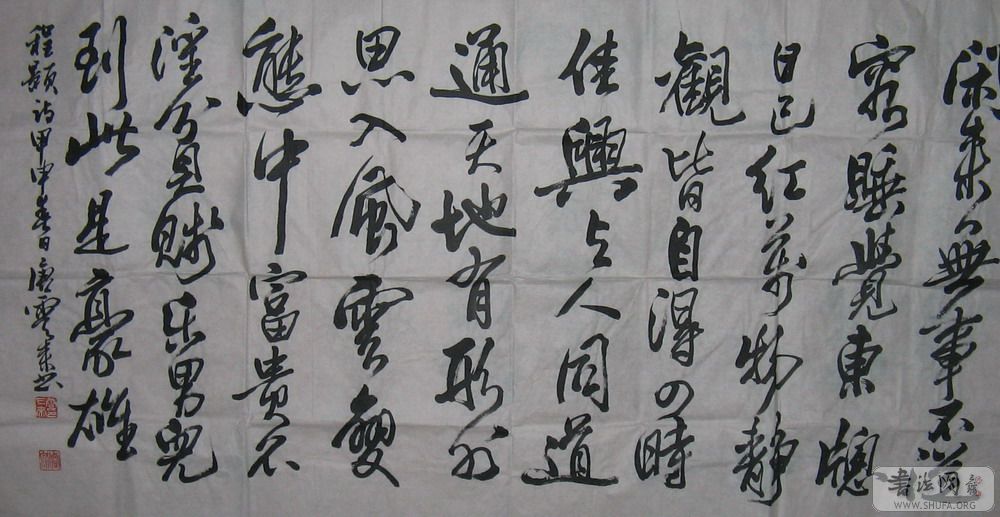 閑来無事不從
容睡覺東牕
日已紅萬物静
觀皆自得四時
佳興与人同道
通天地有形外
思入風雲變
態中富貴不
淫貧賤乐男兒
到此是豪雄
程顥詩甲申春日唐雲来书
书法网
WWW.SHUFA.ORG